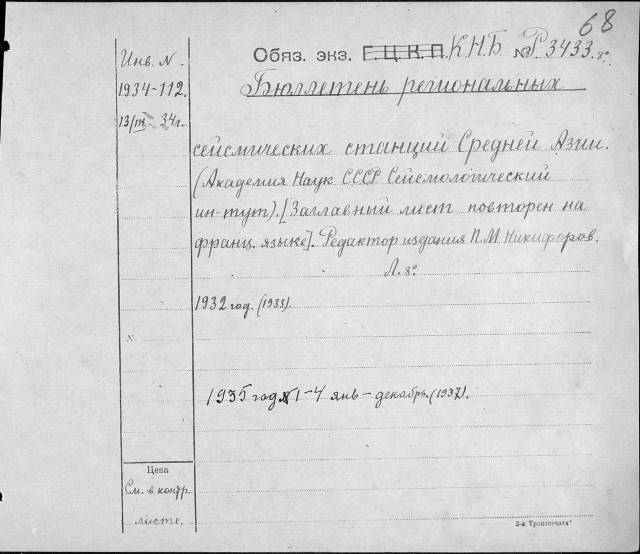 68
Инв. N.
1934-112.
13/III 34г.
Обяз. экз. Г.Ц.К.П. К.Н.Б. № Р.3433. 8°
Бюллетень региональных
сейсмических станций Средней Азии.
(Академия Наук СССР Сейсмологический
ин-тут). [Заглавный лист повторен на
франц. языке]. Редактор издания П.М. Никифоров.
Л. 8°
1932 год. (1933).
N
1935 год № 1-4 янв - декабрь. (1937).
Цена
См. в контр.
листе.
3-я Транспечати